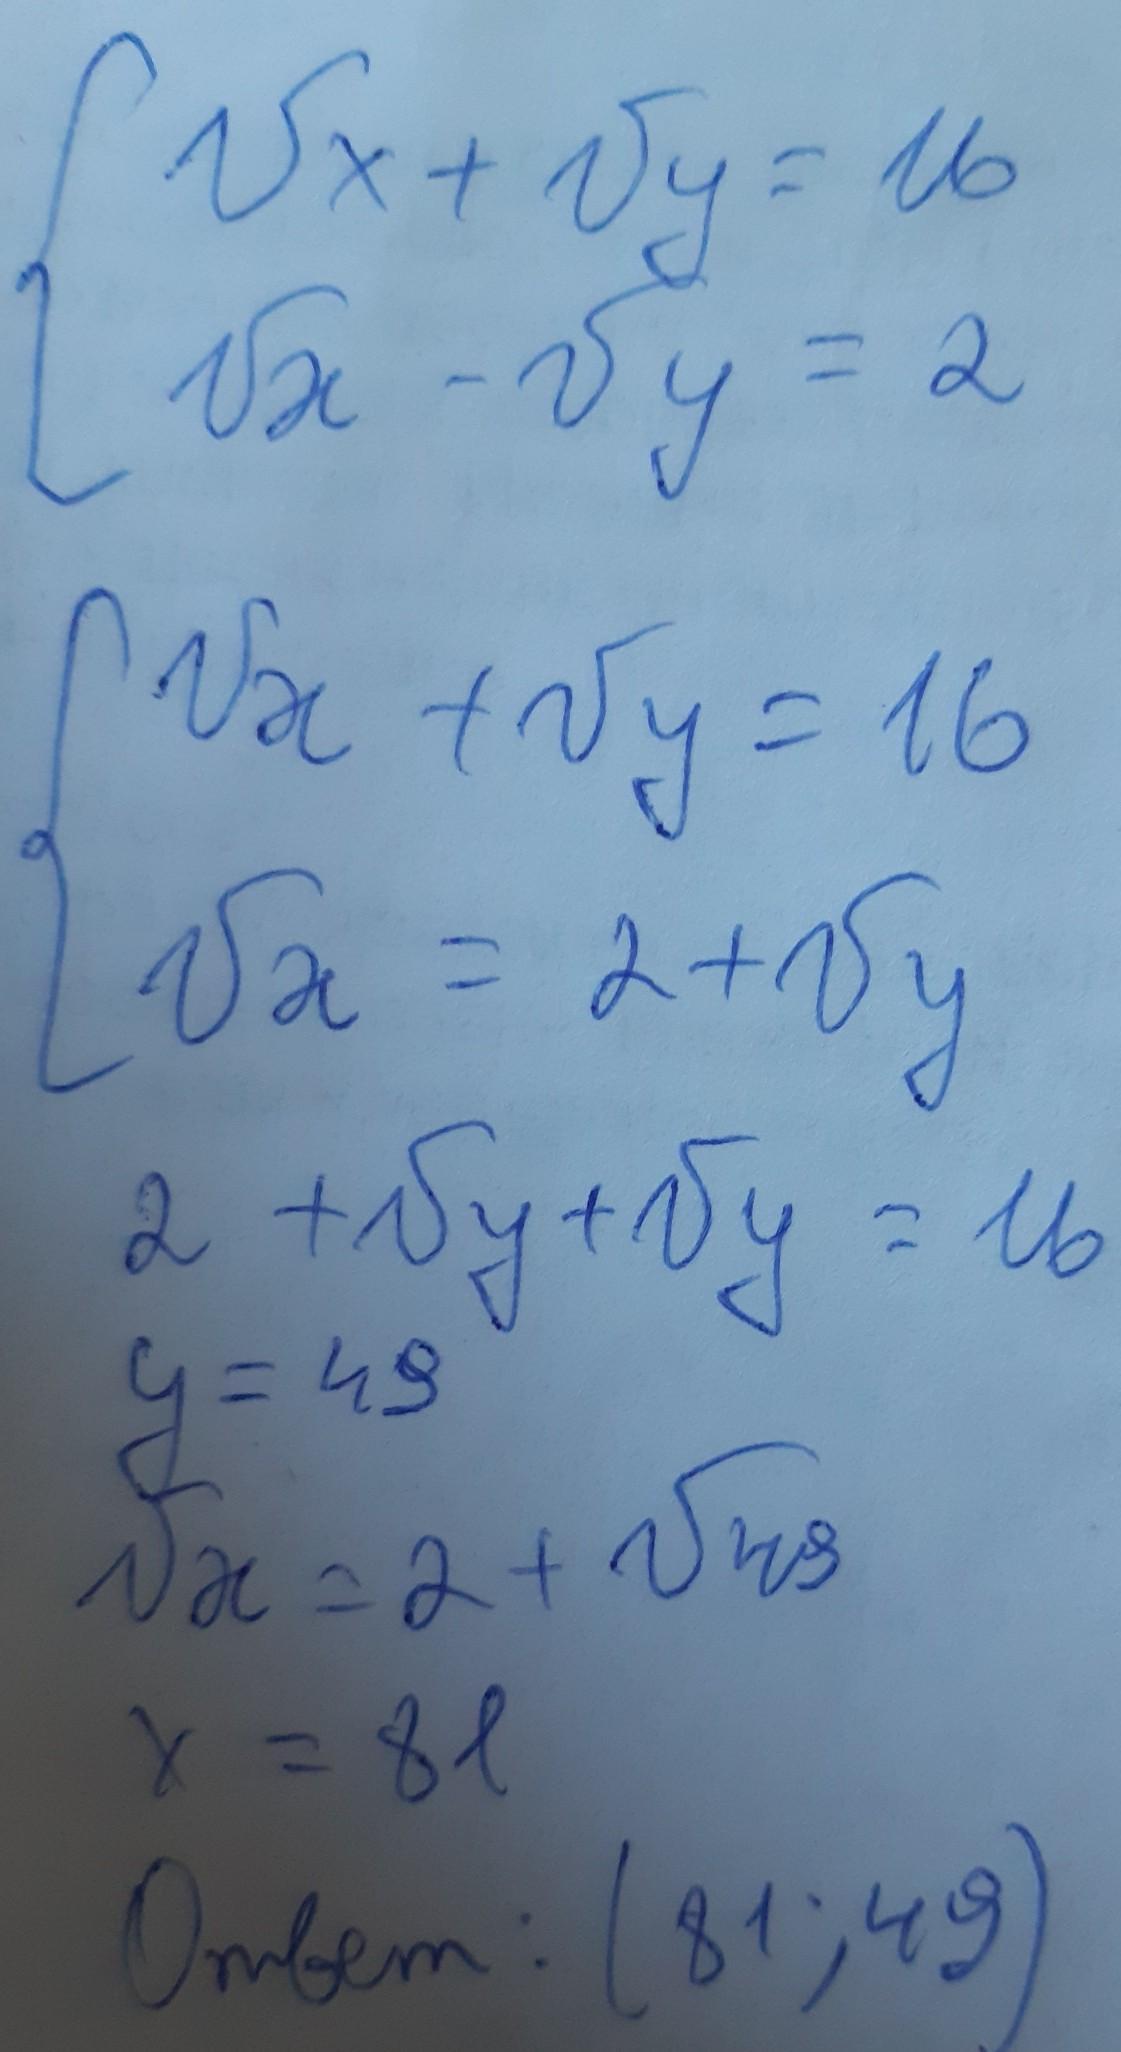 √x + √y = 16
√x - √y = 2
√x + √y = 16
√x = 2 + √y
2 + √y + √y = 16
y = 49
√x = 2 + √49
x = 81
Ответ: (81; 49)